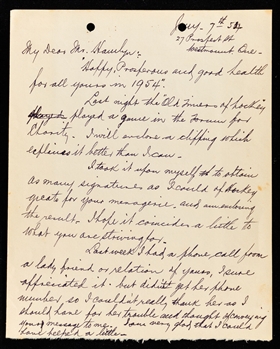 Jany. 7th 54
27 Prospect St
Westmount Que.
My Dear Mr. Hamlyn:
Happy, Prosperous and good health
for all yours in 1954.
Last night the Old Timers of hockey
played a game in the Forum for
Charity. I will enclose a clipping which
explains it better than I can.
I took it upon myself to obtain
as many signatures as I could of Hockey
greats for your menagerie, and am enclosing
the result. I hope it coincides a little to
what you are striving for.
Last week I had a phone call from
a lady friend or relation of yours, I sure
appreciated it. but didn't get her phone
number, so I couldn't really thank her as I
should have for her trouble and thought of conveying
your message to me. I am very glad that I could
have helped a little.